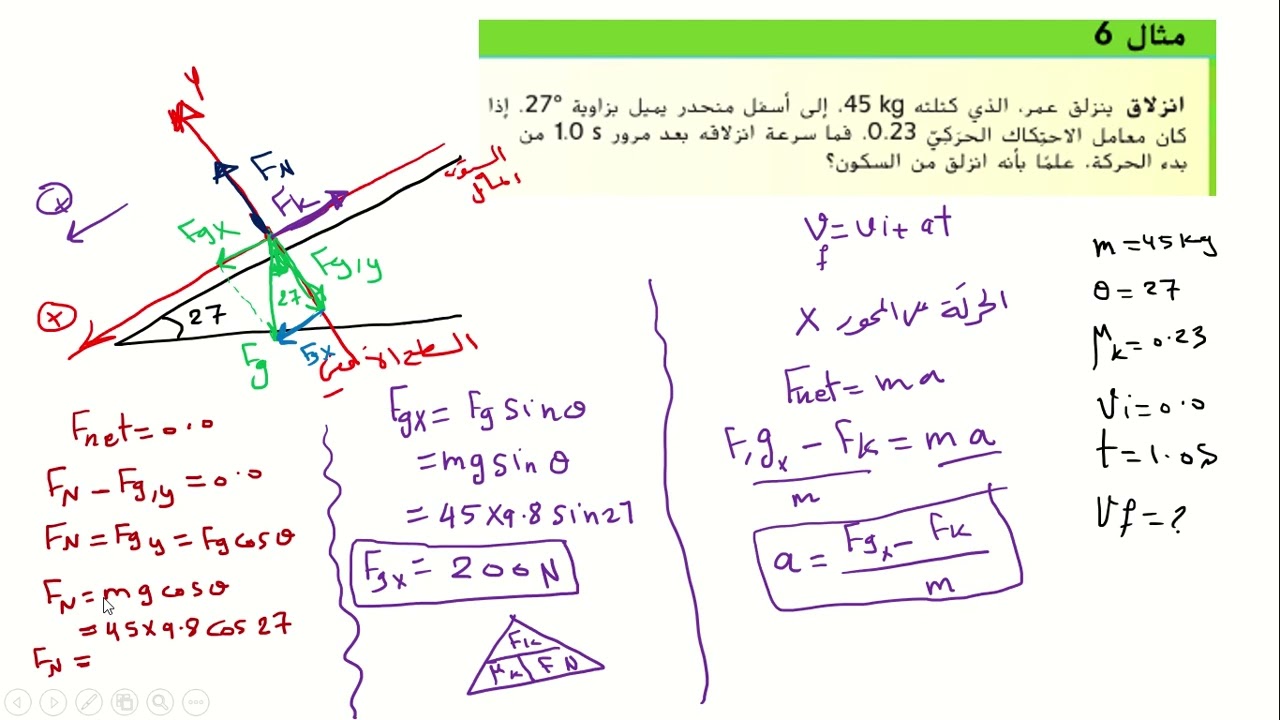 مثال 6
انزلاق ينزلق عمر، الذي كتلته 45 kg، إلى أسفل منحدر يميل بزاوية 27°. إذا
كان معامل الاحتكاك الحركيّ 0.23. فما سرعة انزلاقه بعد مرور 1.0 s من
بدء الحركة، علمًا بأنه انزلق من السكون؟
Y
FN
Fk
x
Fgx
Fg,y
27
27
x
Fg
Fgx
السطح الأفقي
السطح المائل
Fnet = 0.0
FN - Fg,y = 0.0
FN = Fgy = Fg cos θ
FN = mg cos θ
= 45 x 9.8 cos 27
FN =
Fgx = Fg sin θ
= mg sin θ
= 45 x 9.8 sin 27
Fgx = 200 N
Fk
μk FN
vf = vi + at
الحركة على المحور X
Fnet = ma
F,gx - Fk = ma
m
a = Fgx - Fk
m
m = 45 kg
θ = 27
μk = 0.23
Vi = 0.0
t = 1.0 s
Vf = ?